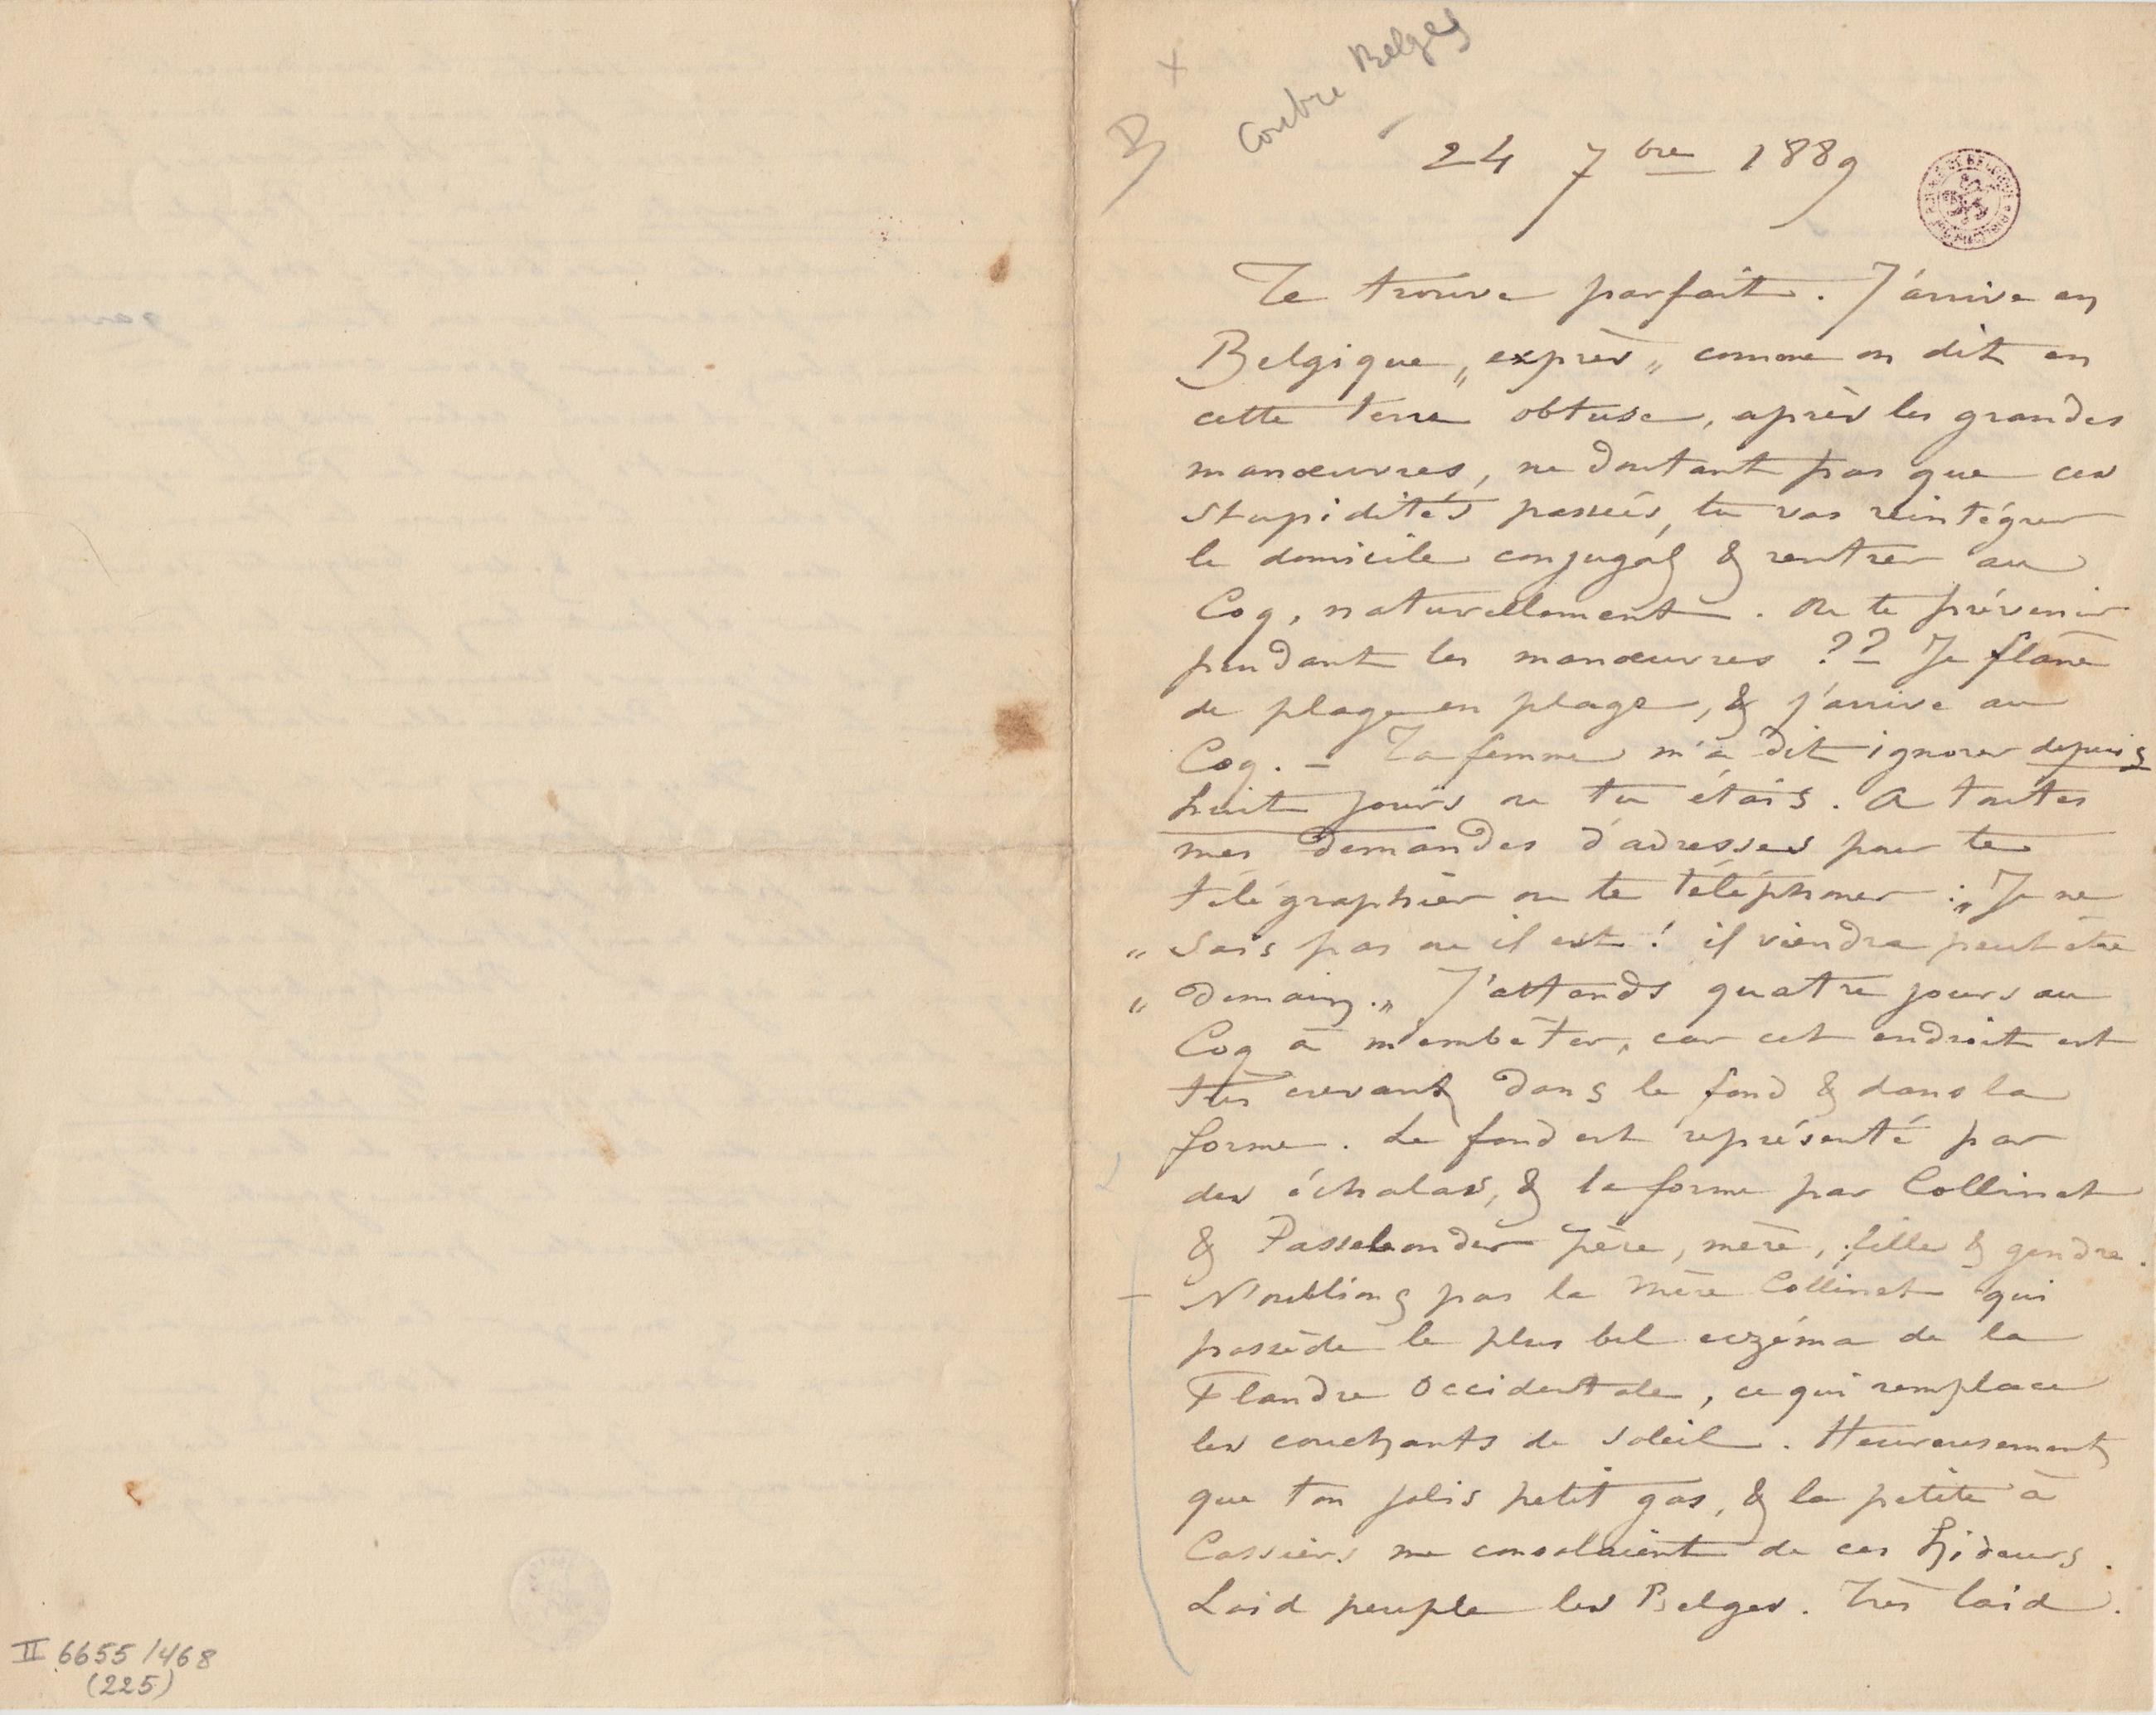 Contre Belges
24 7bre 1889
Te trouve parfait. J'arrive en
Belgique „exprès„ comme on dit en
cette terre obtuse, après les grandes
manœuvres, ne doutant pas que ces
stupidités passées, tu vas réintégrer
le domicile conjugal & rentrer au
Coq, naturellement. Ou te prévenir
pendant les manœuvres ?? Je flane
de plage en plage, & j'arrive au
Coq. – Ta femme m'a dit ignorer depuis
huit jours ou tu étais. A toutes
mes demandes d'adresses pour te
télégraphier ou te téléphoner : „Je ne
„ sais pas ou il est ! il viendra peut être
„ demain.„ J'attends quatre jours au
Coq à m'embêter, car cet endroit est
très crevant dans le fond & dans la
forme. Le fond est représenté par
des échalas, & la forme par Collinet
& Passelonder père, mère, fille & gendre.
– N'oublions pas la mère Collinet qui
possède le plus bel eczéma de la
Flandre Occidentale, ce qui remplace
les couchants de soleil. Heureusement
que ton jolis petit gas, & la petite à
Cassiers me consolaient de ces hideurs.
Laid peuple les Belges. Très laid.
II 6655/468
(225)